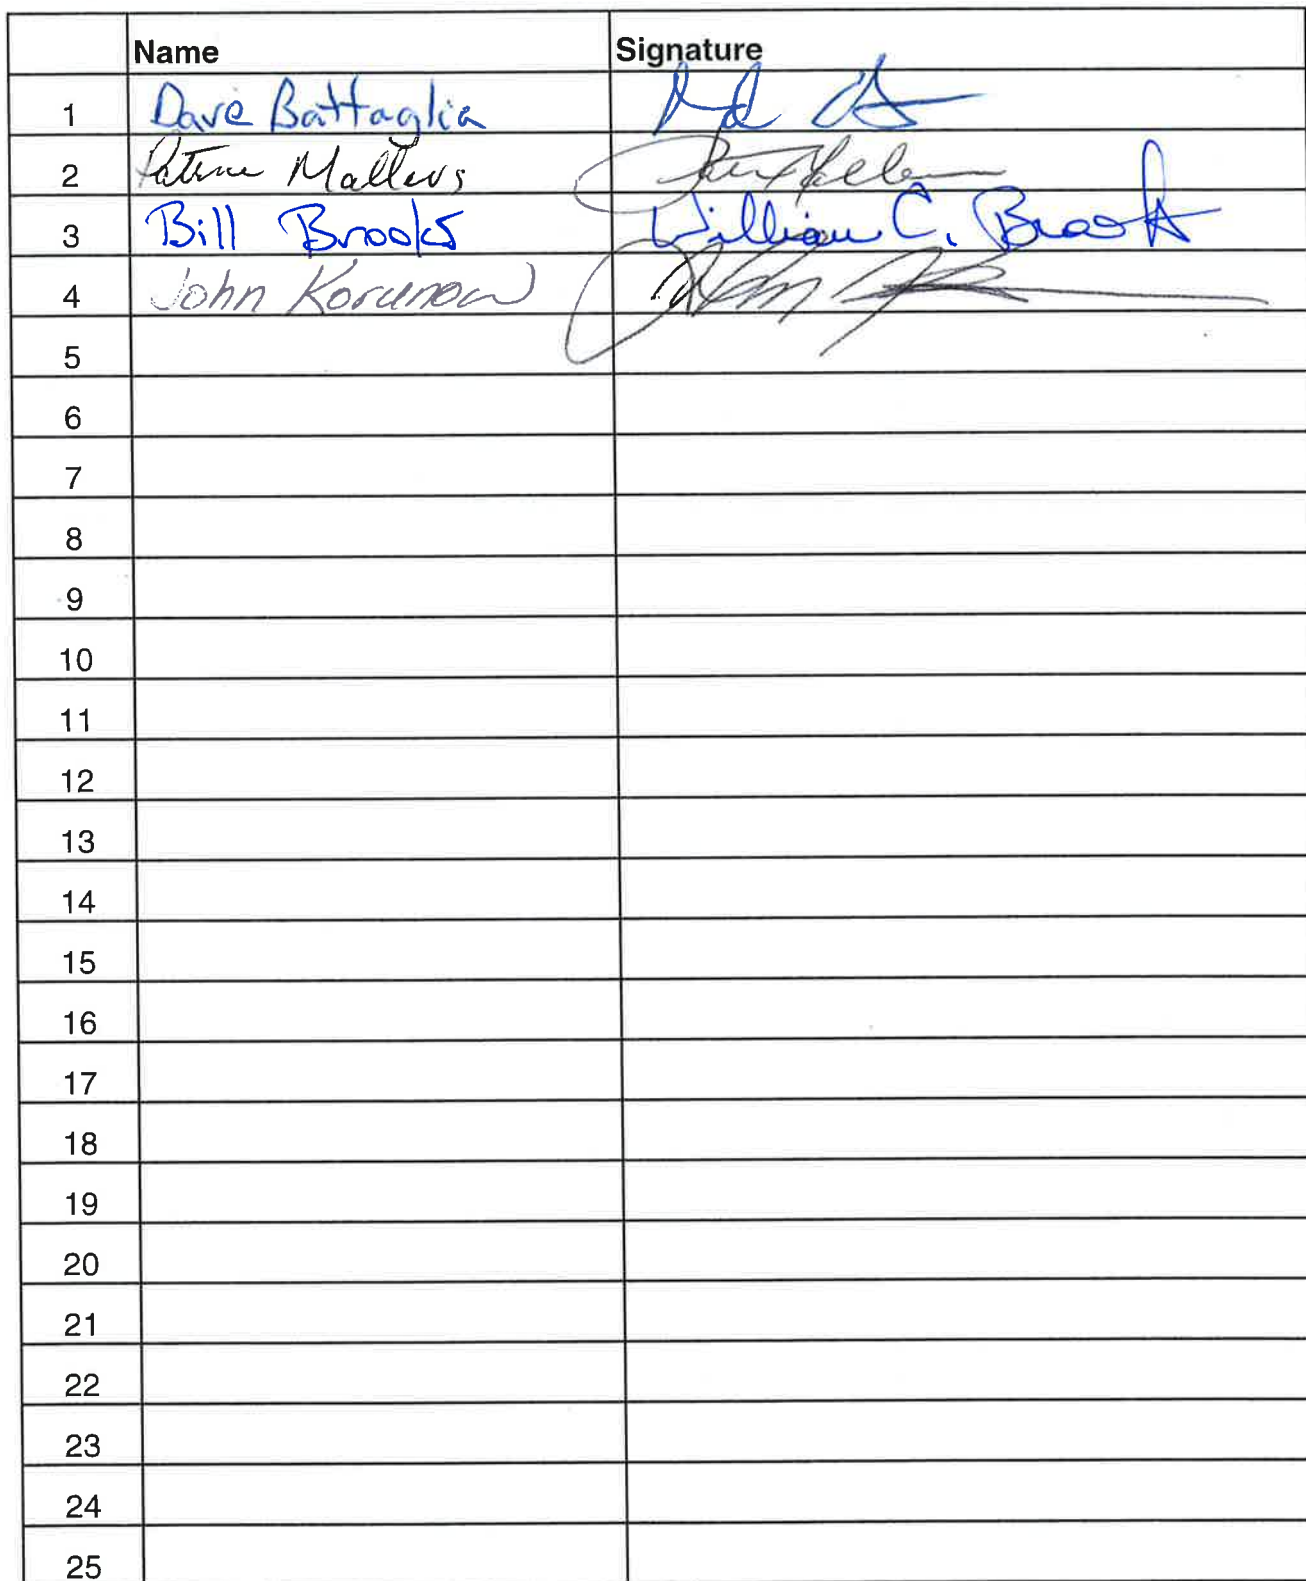 Name Signature
1 Dave Battaglia
2 Mallers
3 Bill Brooks William C. Brooks
4 John Korunow
5
6
7
8
9
10
11
12
13
14
15
16
17
18
19
20
21
22
23
24
25